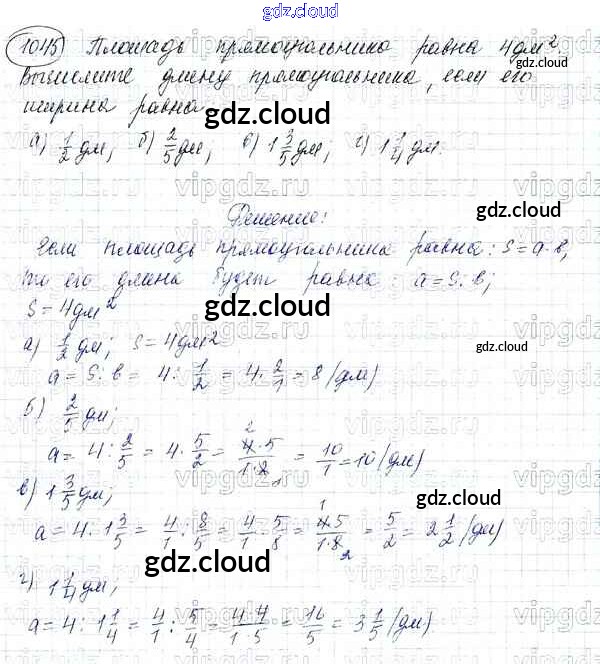 gdz.cloud
1045) Площадь прямоугольника равна 4дм².
Вычислите длину прямоугольника, если его
ширина равна
gdz.cloud
а) 1/2 дм; б) 2/5 дм; в) 1 3/5 дм; г) 1 1/4 дм.
Решение:
Если площадь прямоугольника равна: S=a·b,
то его длина будет равна: a=S:b;
S=4дм²
а) 1/2 дм; S=4дм²
a=S:b=4:1/2=4·2/1=8(дм)
б) 2/5 дм;
a=4:2/5=4·5/2=4·5/1·2=10/1=10(дм)
в) 1 3/5 дм;
a=4:1 3/5=4/1:8/5=4/1·5/8=4·5/1·8=5/2=2 1/2(дм)
г) 1 1/4 дм;
a=4:1 1/4=4/1:5/4=4·4/1·5=16/5=3 1/5(дм).
vipgdz.ru